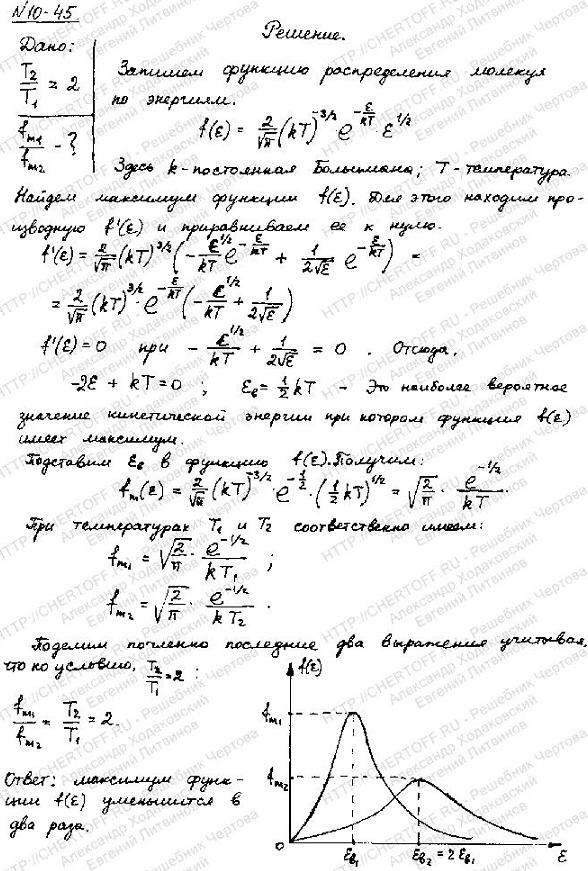 №10-45
Решение.
Дано:
T₂/T₁ = 2
fₘ₁/fₘ₂ - ?
Запишем функцию распределения молекул
по энергиям.
f(ε) = 2/√π (kT)^(-3/2) e^(-ε/kT) · ε^(1/2)
Здесь k-постоянная Больцмана; T-температура.
Найдем максимум функции f(ε). Для этого находим про-
изводную f'(ε) и приравниваем ее к нулю.
f'(ε) = 2/√π (kT)^(3/2) (-ε^(1/2)/kT e^(-ε/kT) + 1/(2√ε) e^(-ε/kT)) =
= 2/√π (kT)^(3/2) · e^(-ε/kT) (-ε^(1/2)/kT + 1/(2√ε))
f'(ε)=0 при -ε^(1/2)/kT + 1/(2√ε) = 0 . Отсюда,
-2ε + kT = 0 ; εв = ½kT - Это наиболее вероятное
значение кинетической энергии при котором функция f(ε)
имеет максимум.
Подставим εв в функцию f(ε). Получим:
fₘ(ε) = 2/√π (kT)^(-3/2) · e^(-1/2) · (½kT)^(1/2) = √(2/π) · e^(-1/2)/kT .
При температурах T₁ и T₂ соответственно имеем:
fₘ₁ = √(2/π) · e^(-1/2)/kT₁ ;
fₘ₂ = √(2/π) · e^(-1/2)/kT₂ .
Поделим почленно последние два выражения учитывая,
что по условию, T₂/T₁ = 2 :
fₘ₁/fₘ₂ = T₂/T₁ = 2.
Ответ: максимум функ-
ции f(ε) уменьшится в
два раза.
f(ε)
fₘ₁
fₘ₂
0
εв₁
εв₂ = 2εв₁
ε
HTTP://CHERTOFF.RU - Решебник Чертова
Александр Ходаковский
Евгений Литвинов